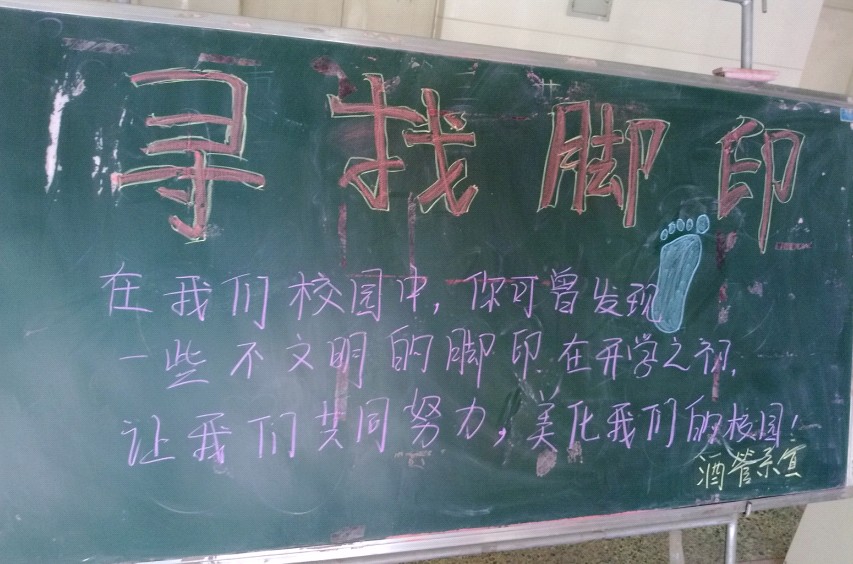 寻找脚印
在我们校园中,你可曾发现
一些不文明的脚印.在开学之初,
让我们共同努力,美化我们的校园!
酒管系宣